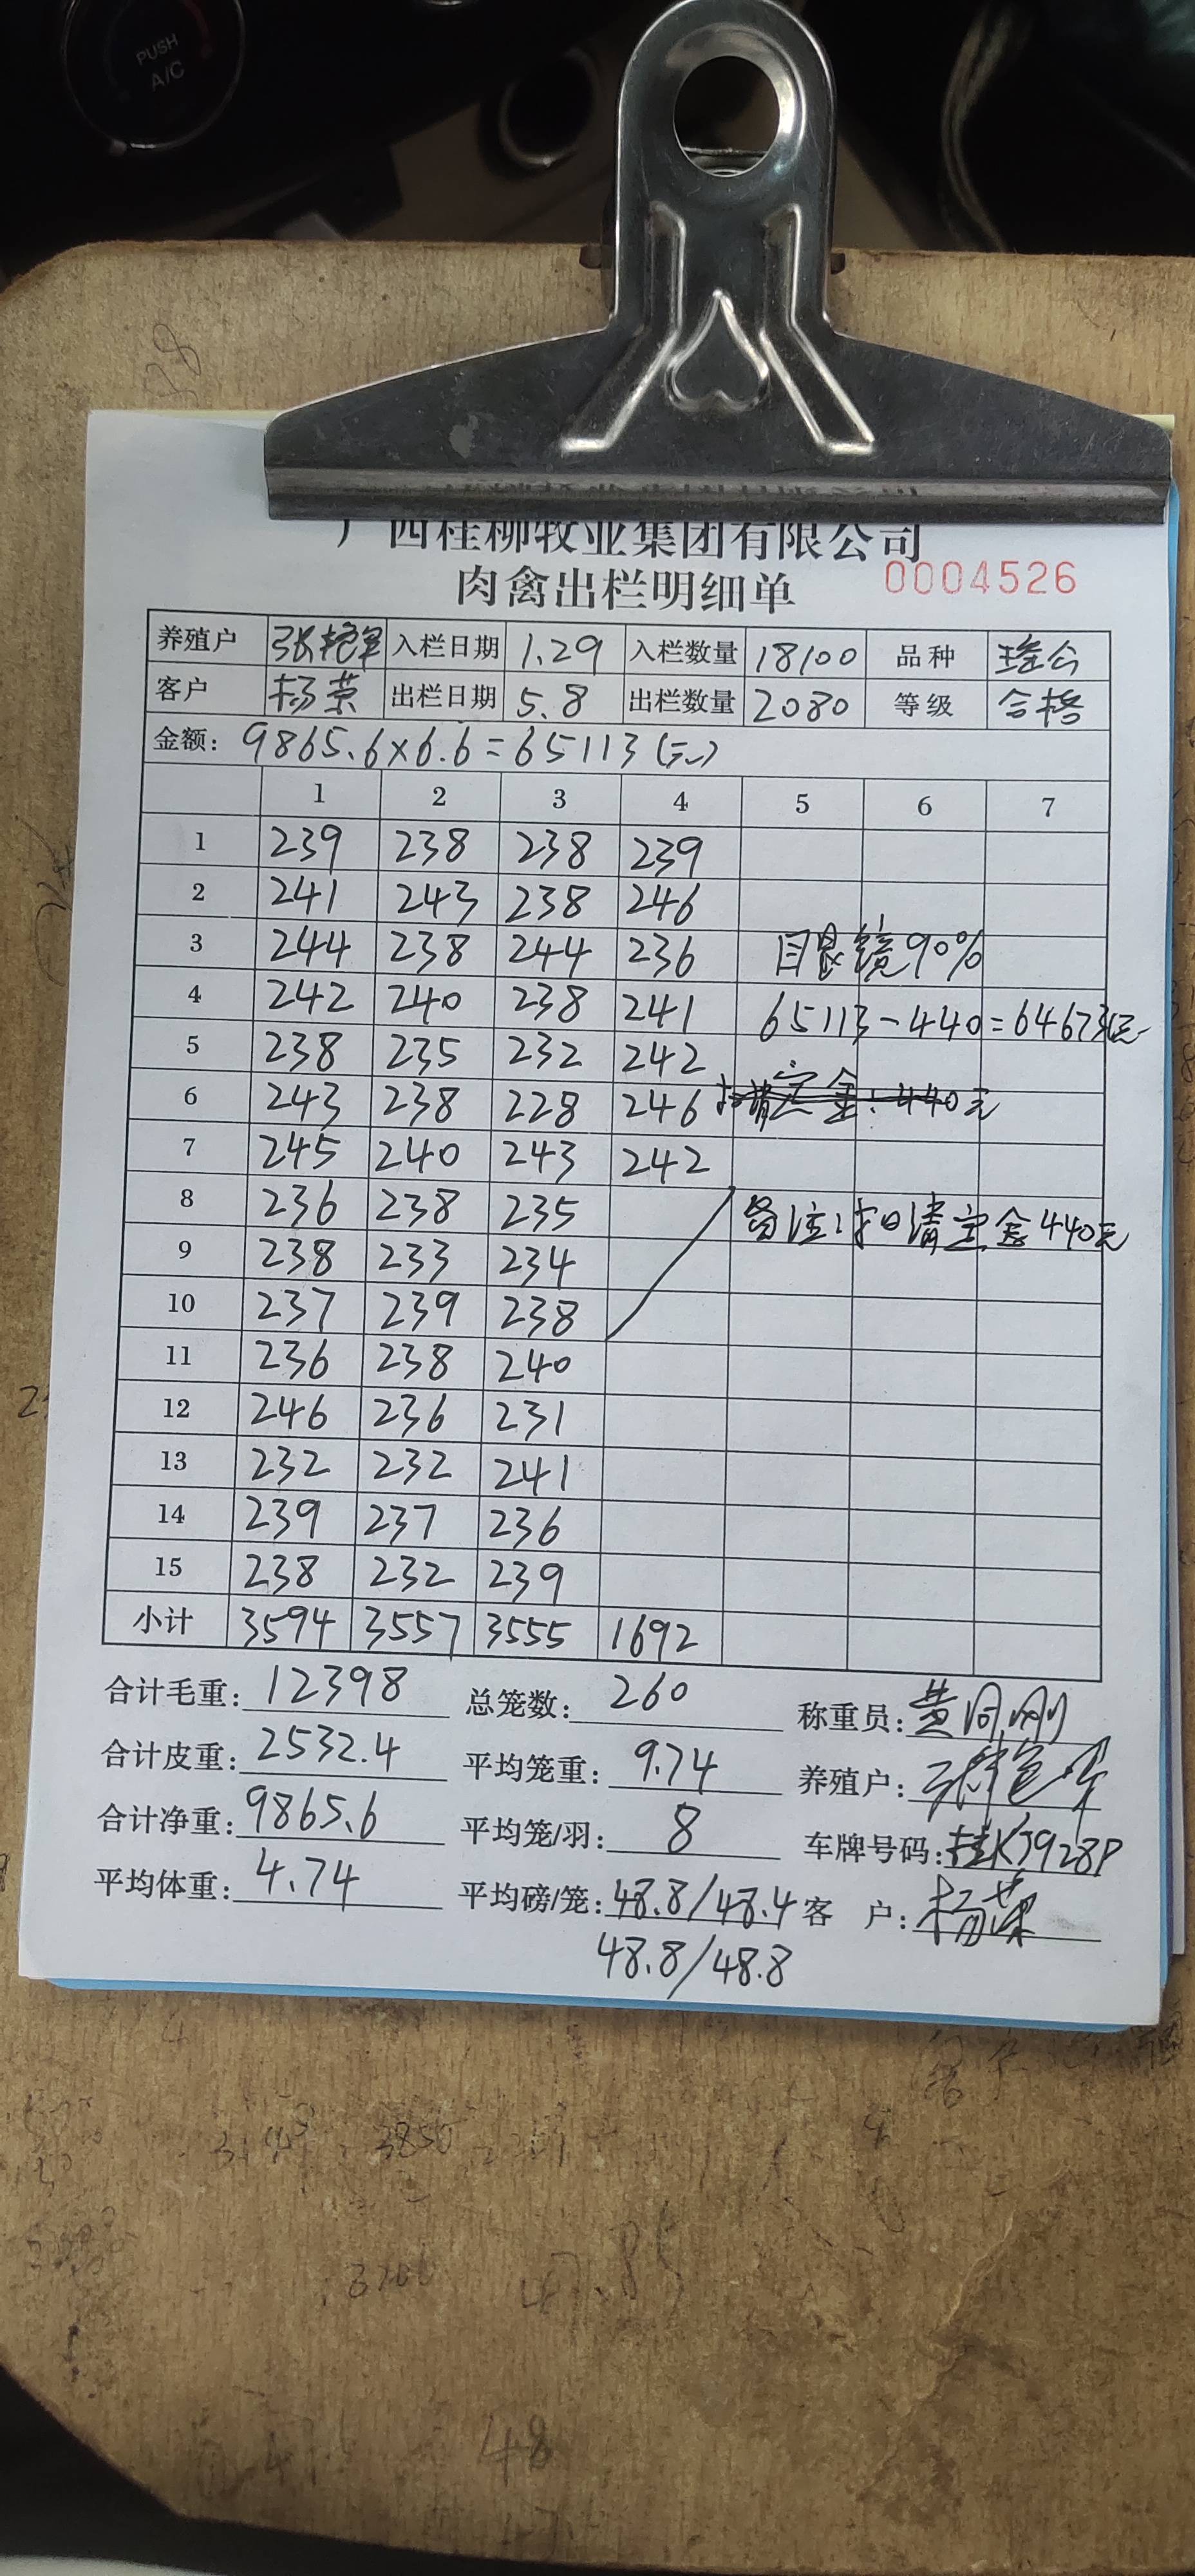 PUSH
A/C
广西桂柳牧业集团有限公司
肉禽出栏明细单 0004526
养殖户 张艳军 入栏日期 1.29 入栏数量 18100 品种 瑶公
客户 杨荣 出栏日期 5.8 出栏数量 2080 等级 合格
金额: 9865.6×6.6=65113(元)
1 2 3 4 5 6 7
1 239 238 238 239
2 241 243 238 246
3 244 238 244 236 目眼镜90%
4 242 240 238 241 65113-440=64673元
5 238 235 232 242
6 243 238 228 246 扣请定金:440元
7 245 240 243 242
8 236 238 235 备注:扣请定金440元
9 238 233 234
10 237 239 238
11 236 238 240
12 246 236 231
13 232 232 241
14 239 237 236
15 238 232 239
小计 3594 3557 3555 1692
合计毛重: 12398 总笼数: 260 称重员: 黄同刚
合计皮重: 2532.4 平均笼重: 9.74 养殖户:
合计净重: 9865.6 平均笼/羽: 8 车牌号码: 桂KJ928P
平均体重: 4.74 平均磅/笼: 48.8/48.4 客户: 杨荣
48.8/48.8
48